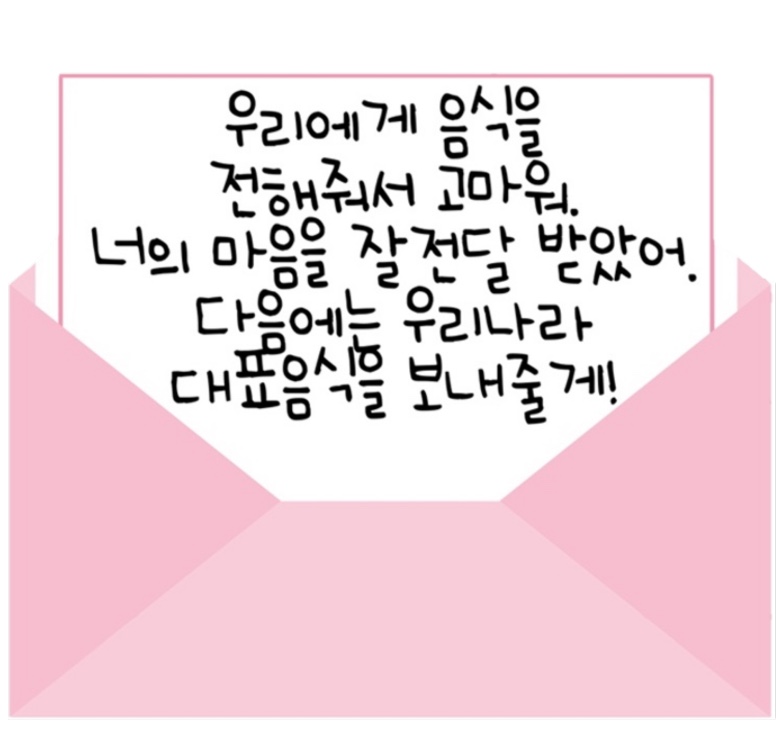 우리에게 음식을
전해줘서 고마워.
너의 마음을 잘 전달 받았어.
다음에는 우리나라
대표음식을 보내줄게!